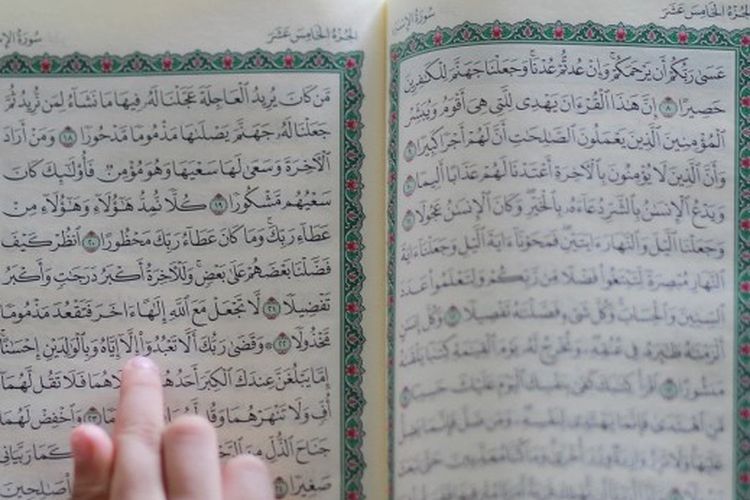 الجُزْءُ الخَامِسَ عَشَرَ
سُورَةُ
عَسَىٰ رَبُّكُمْ أَن يَرْحَمَكُمْ وَإِنْ عُدتُّمْ عُدْنَا وَجَعَلْنَا جَهَنَّمَ لِلْكَٰفِرِينَ
حَصِيرًا ٨ إِنَّ هَٰذَا ٱلْقُرْءَانَ يَهْدِى لِلَّتِى هِىَ أَقْوَمُ وَيُبَشِّرُ
ٱلْمُؤْمِنِينَ ٱلَّذِينَ يَعْمَلُونَ ٱلصَّٰلِحَٰتِ أَنَّ لَهُمْ أَجْرًا كَبِيرًا ٩
وَأَنَّ ٱلَّذِينَ لَا يُؤْمِنُونَ بِٱلْءَاخِرَةِ أَعْتَدْنَا لَهُمْ عَذَابًا أَلِيمًا ١٠
وَيَدْعُ ٱلْإِنسَٰنُ بِٱلشَّرِّ دُعَآءَهُۥ بِٱلْخَيْرِ وَكَانَ ٱلْإِنسَٰنُ عَجُولًا ١١
وَجَعَلْنَا ٱلَّيْلَ وَٱلنَّهَارَ ءَايَتَيْنِ فَمَحَوْنَآ ءَايَةَ ٱلَّيْلِ وَجَعَلْنَآ ءَايَةَ
ٱلنَّهَارِ مُبْصِرَةً لِّتَبْتَغُوا۟ فَضْلًا مِّن رَّبِّكُمْ وَلِتَعْلَمُوا۟ عَدَدَ
ٱلسِّنِينَ وَٱلْحِسَابَ وَكُلَّ شَىْءٍ فَصَّلْنَٰهُ تَفْصِيلًا ١٢ وَكُلَّ إِنسَٰنٍ
أَلْزَمْنَٰهُ طَٰٓئِرَهُۥ فِى عُنُقِهِۦ وَنُخْرِجُ لَهُۥ يَوْمَ ٱلْقِيَٰمَةِ كِتَٰبًا يَلْقَىٰهُ
مَنشُورًا ١٣ ٱقْرَأْ كِتَٰبَكَ كَفَىٰ بِنَفْسِكَ ٱلْيَوْمَ عَلَيْكَ حَسِيبًا ١٤
مَّنِ ٱهْتَدَىٰ فَإِنَّمَا يَهْتَدِى لِنَفْسِهِۦ وَمَن ضَلَّ فَإِنَّمَا يَضِلُّ
الجُزْءُ الخَامِسَ عَشَرَ
سُورَةُ
مَّن كَانَ يُرِيدُ ٱلْعَاجِلَةَ عَجَّلْنَا لَهُۥ فِيهَا مَا نَشَآءُ لِمَن نُّرِيدُ ثُمَّ
جَعَلْنَا لَهُۥ جَهَنَّمَ يَصْلَىٰهَا مَذْمُومًا مَّدْحُورًا ١٨ وَمَنْ أَرَادَ
ٱلْءَاخِرَةَ وَسَعَىٰ لَهَا سَعْيَهَا وَهُوَ مُؤْمِنٌ فَأُو۟لَٰٓئِكَ كَانَ
سَعْيُهُم مَّشْكُورًا ١٩ كُلًّا نُّمِدُّ هَٰٓؤُلَآءِ وَهَٰٓؤُلَآءِ مِنْ
عَطَآءِ رَبِّكَ وَمَا كَانَ عَطَآءُ رَبِّكَ مَحْظُورًا ٢٠ ٱنظُرْ كَيْفَ
فَضَّلْنَا بَعْضَهُمْ عَلَىٰ بَعْضٍ وَلَلْءَاخِرَةُ أَكْبَرُ دَرَجَٰتٍ وَأَكْبَرُ
تَفْضِيلًا ٢١ لَّا تَجْعَلْ مَعَ ٱللَّهِ إِلَٰهًا ءَاخَرَ فَتَقْعُدَ مَذْمُومًا
مَّخْذُولًا ٢٢ ۞ وَقَضَىٰ رَبُّكَ أَلَّا تَعْبُدُوٓا۟ إِلَّآ إِيَّاهُ وَبِٱلْوَٰلِدَيْنِ إِحْسَٰنًا
إِمَّا يَبْلُغَنَّ عِندَكَ ٱلْكِبَرَ أَحَدُهُمَآ لَاهُمَا فَلَا تَقُل لَّهُمَآ
أُفٍّ وَلَا تَنْهَرْهُمَا وَقُل لَّهُمَا مًا ٢٣ وَٱخْفِضْ لَهُمَا
جَنَاحَ ٱلذُّلِّ مِنَ كَمَا رَبَّيَانِى
صَغِيرًا ٢٤ صَٰلِحِينَ